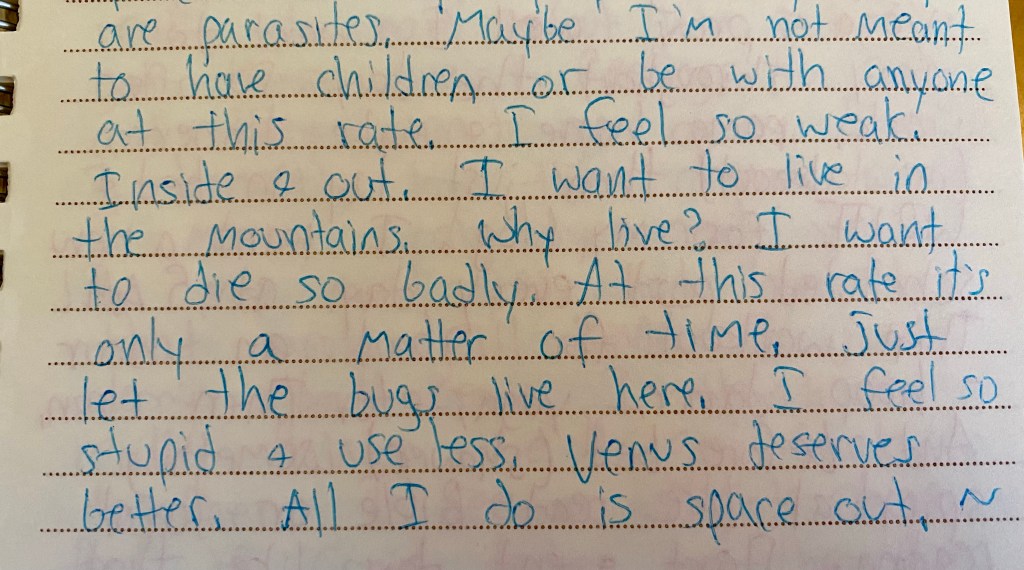 are parasites. Maybe I'm not meant
to have children or be with anyone
at this rate. I feel so weak.
Inside & out. I want to live in
the mountains. Why live? I want
to die so badly. At this rate it's
only a matter of time. Just
let the bugs live here. I feel so
stupid & use less. Venus deserves
better. All I do is space out. ~